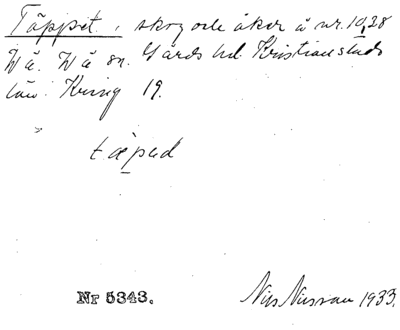 Täppet, skog och åker å nr. 10,28
Wä. Wä sn. Gärds hd. Kristianstads
län. Kring 19.
tæpad
Nr 5343.
Nils Nilsson 1933.